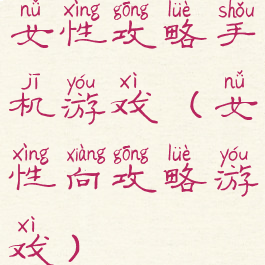 nǚ xìng gōng lüè shǒu
女性攻略手
jī yóu xì nǚ
机游戏（女
xìng xiàng gōng lüè yóu
性向攻略游
xì
戏）